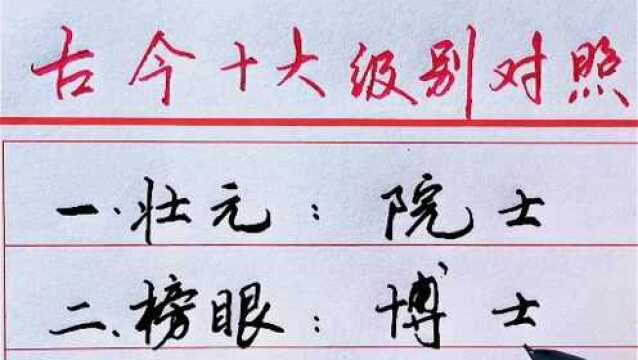 古今十大级别对照
一.壮元：院士
二.榜眼：博士